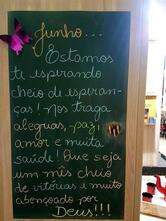 Junho...
Estamos
te esperando
cheio de esperan-
ças! Nos traga
alegrias, paz,
amor e muita
saúde! Que seja
um mês cheio
de vitórias e muito
abençoado por
Deus!!!